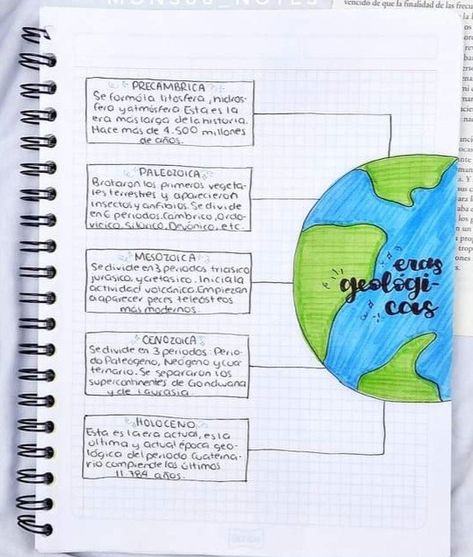 MONSUU_NOTES
vencido de que la finalidad de las frecu
PRECAMBRICA
Se formó la litosfera, hidros-
fera y atmósfera Esta es la
era mas larga de la historia.
Hace mas de 4.500 millones
de años.
PALEOZOICA
Brotaron los primeros vegeta-
les terrestres y aparecieron
insectos y anfibios. Se divide
en 6 periodos. Cámbrico, Ordo-
vicico, Silúrico, Devónico, etc.
MESOZOICA
Se divide en 3 periodos triasico
jurásico, y cretasico. Inicia la
actividad volcánica. Empiezan
a aparecer peces teleósteos
mas modernos.
CENOZOICA
Se divide en 3 periodos: Perio-
do Paleógeno, Neógeno y cua
ternario. Se separaron los
supercontinentes de Gondwana
y de Laurasia.
HOLOCENO
Esta es la era actual, es la
última y actual época geo-
lógica del periodo Cuatern-
ario comprende los últimos
11.784 años.
eras
geológi-
cas